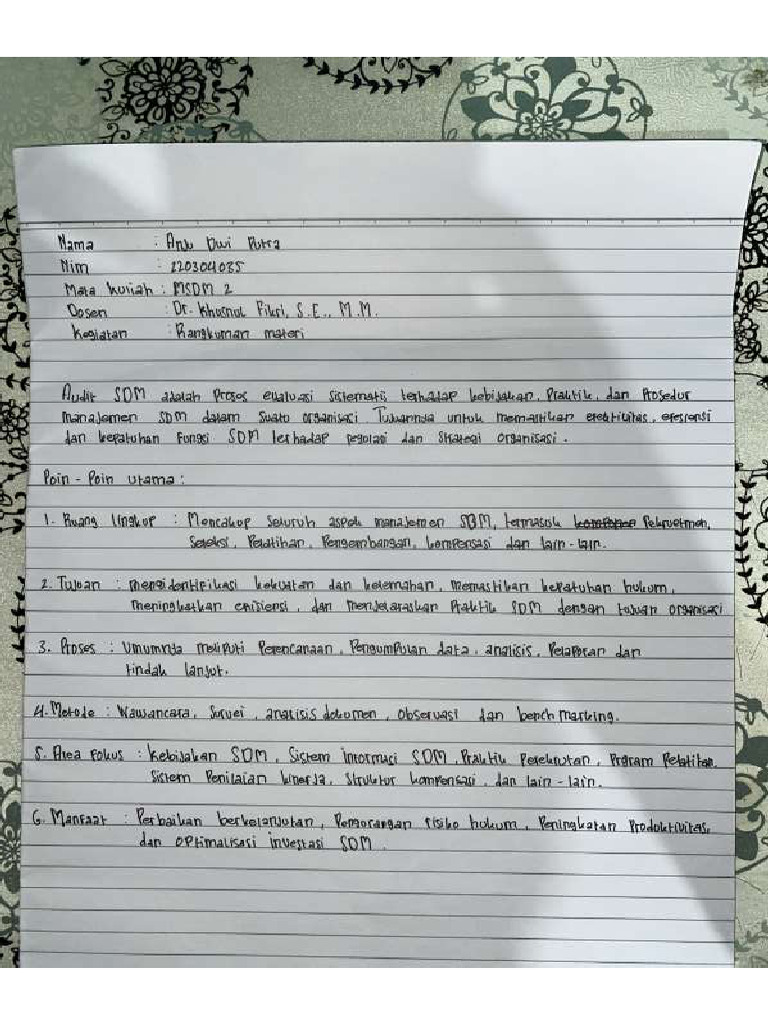 Nama : Anju Dwi Putra
Nim : 220304035
Mata kuliah : MSDM 2
Dosen : Dr. Khusnul Fikri, S.E., M.M.
Kegiatan : Rangkuman materi
Audit SDM adalah Proses evaluasi sistematis terhadap kebijakan, Praktik, dan Prosedur
manajemen SDM dalam suatu organisasi. Tujuannya untuk memastikan efektivitas, efesiensi
dan kepatuhan fungsi SDM terhadap regulasi dan strategi organisasi.
Poin - Poin utama :
1. Ruang lingkup : Mencakup seluruh aspek manajemen SDM, termasuk Rekruetmen,
Seleksi, Pelatihan, Pengembangan, kompensasi dan lain-lain.
2. Tujuan : mengidentifikasi kekuatan dan kelemahan, memastikan kepatuhan hukum,
meningkatkan efisiensi, dan menyelaraskan Praktik SDM dengan tujuan organisasi
3. Proses : Umumnya meliputi Perencanaan, Pengumpulan data, analisis, Pelaporan dan
tindak lanjut.
4. Metode : Wawancara, Survei, analisis dokumen, observasi dan bench marking.
5. Area Fokus : Kebijakan SDM, Sistem informasi SDM, Praktik Perekrutan, Program Pelatihan,
Sistem Penilaian kinerja, Struktur kompensasi, dan lain-lain.
6. Manfaat : Perbaikan berkelanjutan, Pengurangan risiko hukum, Peningkatan Produktivitas,
dan optimalisasi investasi SDM.